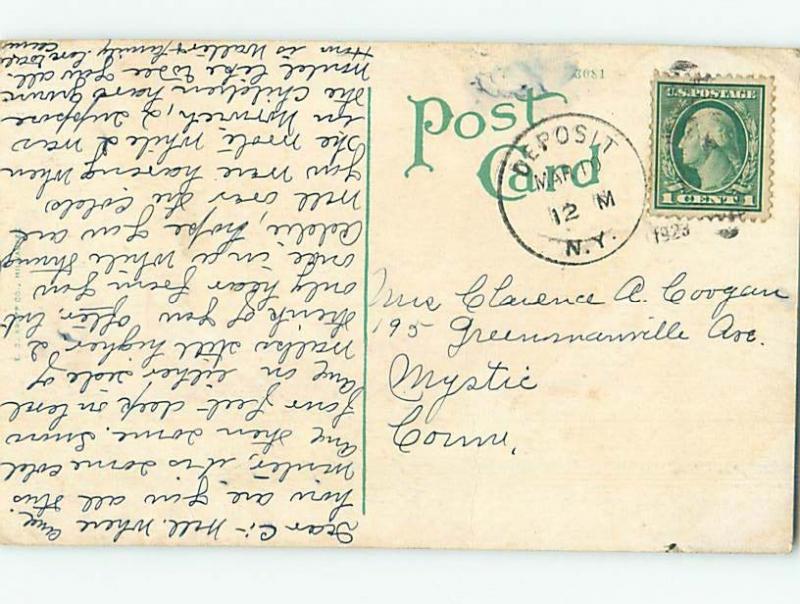 3081
Post
Card
U.S. POSTAGE
1 CENT 1
DEPOSIT
MAR 10
12 M
N.Y.
1923
Mrs Clarence A. Coogan
195 Greenmanville Ave.
Mystic
Conn.
Dear C:- Well. Where and
how are you all this
winter, it is some cold
and then some. Snow
four feet deep on level
and on either side of
walks still higher I
think of you often but
only hear from you
once in a while through
Addie, hope you are
well over the colds
you were having when
she wrote while I was
in Norwich, I suppose
the children have grown
would like to see you all.
How is Walter & family. Love to all